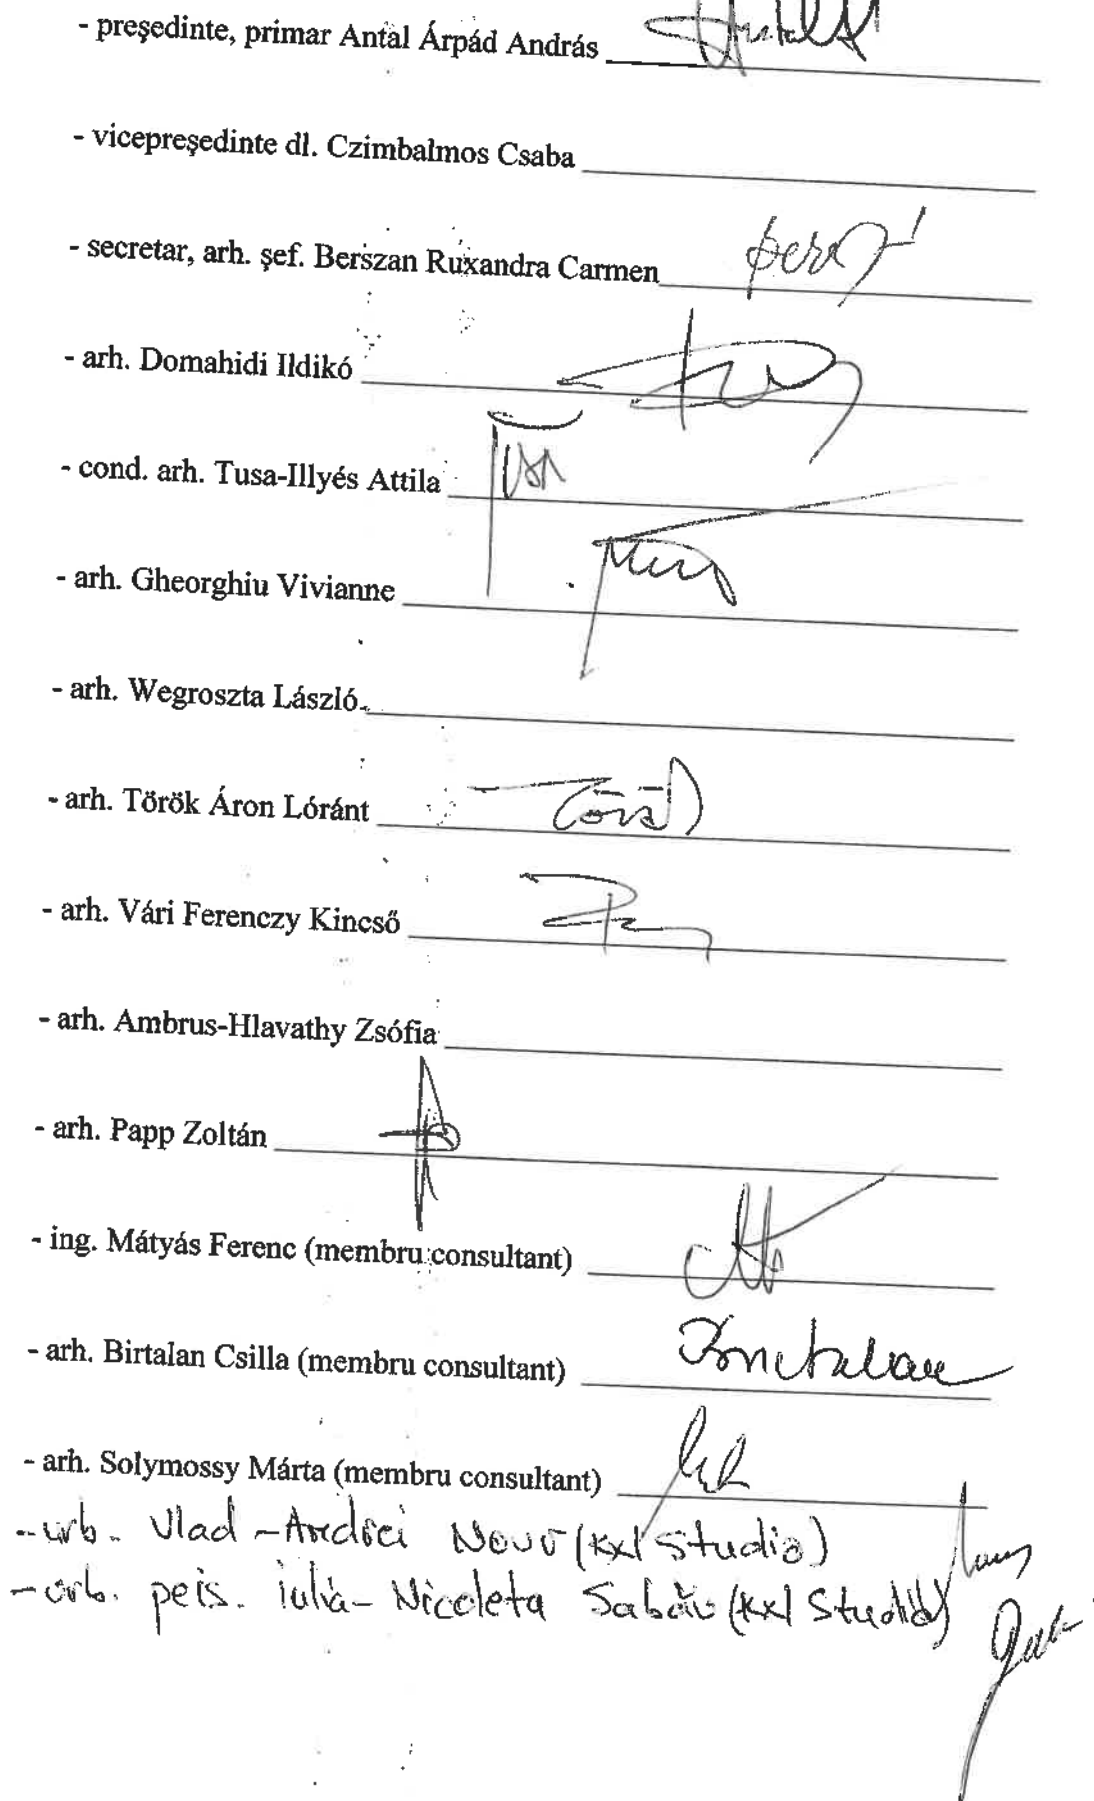 - preşedinte, primar Antal Árpád András
- vicepreşedinte dl. Czimbalmos Csaba
- secretar, arh. şef. Berszan Ruxandra Carmen
- arh. Domahidi Ildikó
- cond. arh. Tusa-Illyés Attila
- arh. Gheorghiu Vivianne
- arh. Wegroszta László
- arh. Török Áron Lóránt
- arh. Vári Ferenczy Kincső
- arh. Ambrus-Hlavathy Zsófia
- arh. Papp Zoltán
- ing. Mátyás Ferenc (membru consultant)
- arh. Birtalan Csilla (membru consultant)
- arh. Solymossy Márta (membru consultant)
- urb. Vlad-Andrei (kxl studio)
- urb. peis. iulia-Nicoleta Sabău (kxl Studio)